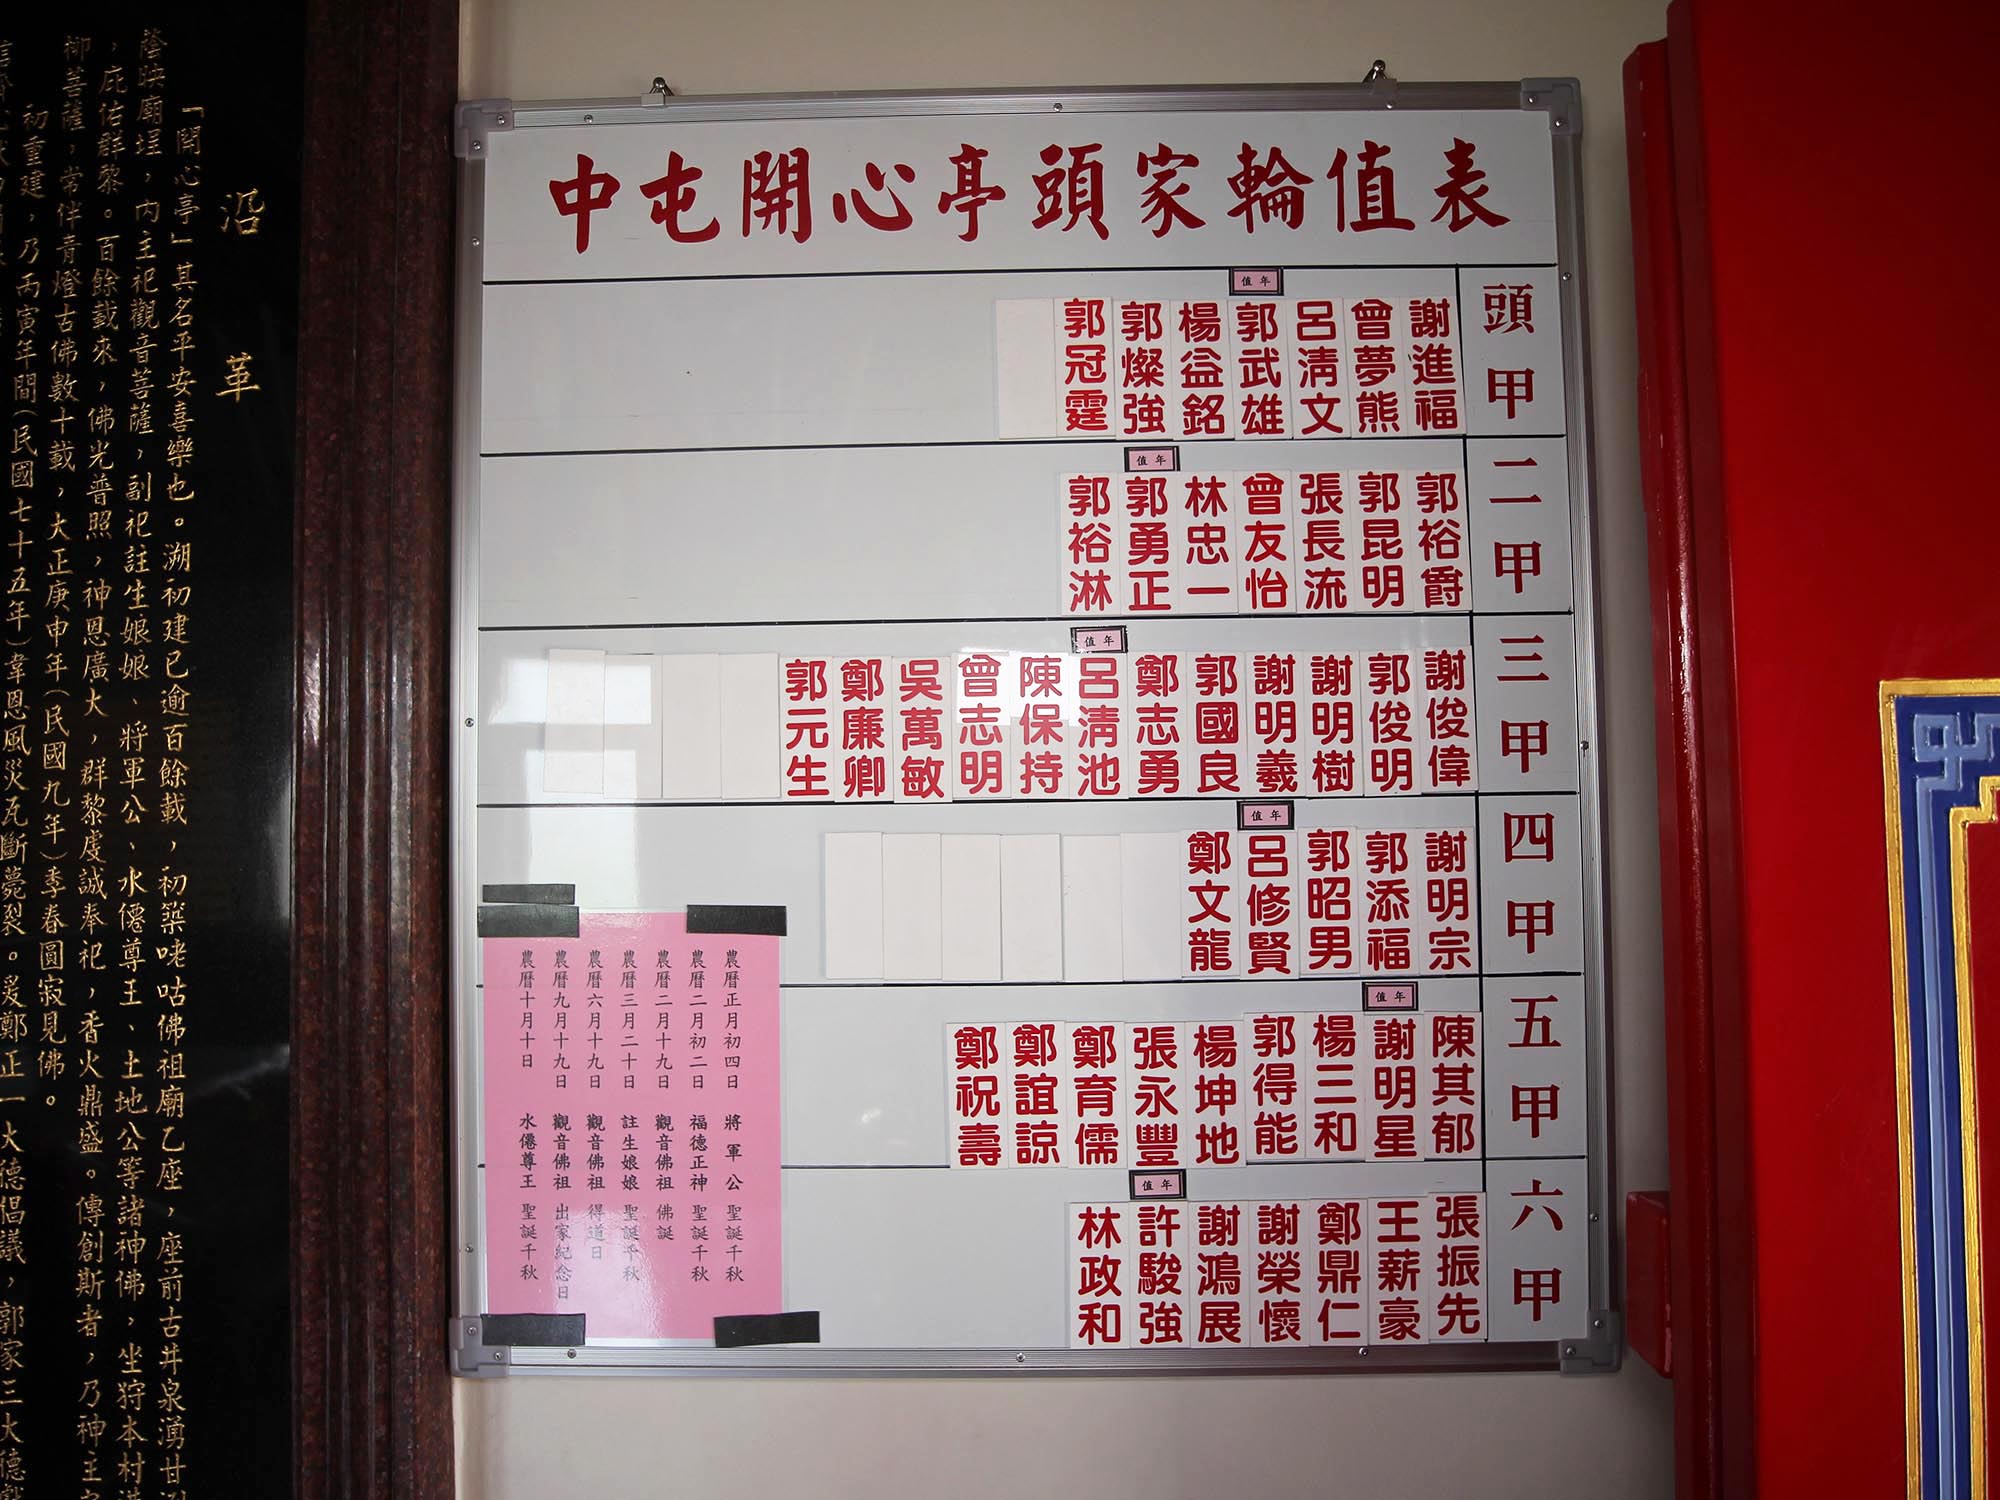 中屯開心亭頭家輪值表
頭甲
值年
謝進福
曾夢熊
呂清文
郭武雄
楊益銘
郭燦強
郭冠霆
二甲
值年
郭裕爵
郭昆明
張長流
曾友怡
林忠一
郭勇正
郭裕淋
三甲
值年
謝俊偉
郭俊明
謝明樹
謝明羲
郭國良
鄭志勇
呂清池
陳保持
曾志明
吳萬敏
鄭廉卿
郭元生
四甲
值年
謝明宗
郭添福
郭昭男
呂修賢
鄭文龍
五甲
值年
陳其郁
謝明星
楊三和
郭得能
楊坤地
張永豐
鄭育儒
鄭誼諒
鄭祝壽
六甲
值年
張振先
王薪豪
鄭鼎仁
謝榮懷
謝鴻展
許駿強
林政和
農曆正月初四日 將軍公 聖誕千秋
農曆二月初二日 福德正神 聖誕千秋
農曆二月十九日 觀音佛祖 佛誕
農曆三月二十日 註生娘娘 聖誕千秋
農曆六月十九日 觀音佛祖 得道日
農曆九月十九日 觀音佛祖 出家紀念日
農曆十月十日 水僊尊王 聖誕千秋
沿革
「開心亭」其名平安喜樂也。溯初建已逾百餘載，初築咾咕佛祖廟乙座，座前古井泉湧甘
蔭映廟埕，內主祀觀音菩薩，副祀註生娘娘、將軍公、水僊尊王、土地公等諸神佛，坐狩本村
，庇佑群黎。百餘載來，佛光普照，神恩廣大，群黎虔誠奉祀，香火鼎盛。傳創斯者，乃神主
柳菩薩，常伴青燈古佛數十載，大正庚申年（民國九年）季春圓寂見佛。
初重建，乃丙寅年間（民國七十五年）韋恩風災瓦斷甍裂。爰鄭正一大德倡議，郭家三大德